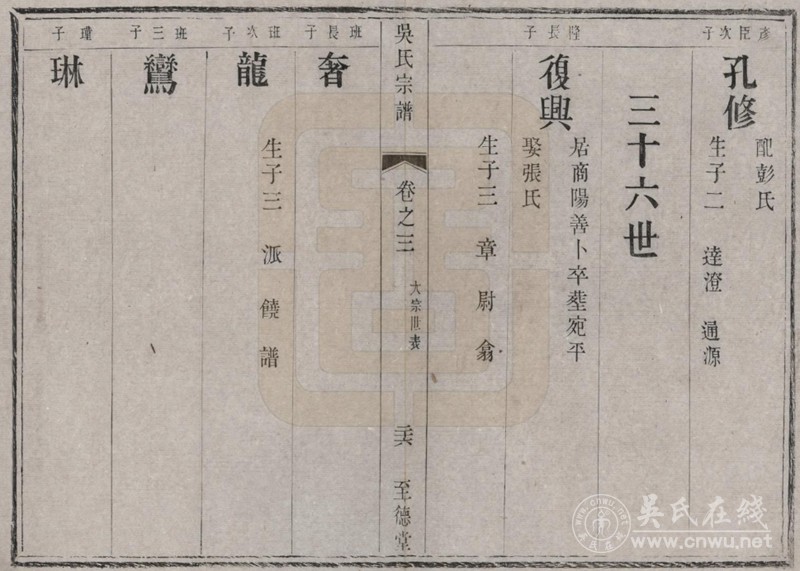 彥臣次子
孔修
配彭氏
生子二　達澄　通源
三十六世
隆長子
復興
居商陽善卜卒塟宛平
娶張氏
生子三　章　尉　翕
吳氏宗譜
卷之三
大宗世表
至德堂
班長子
奢
班次子
龍
生子三　派　饒　譜
班三子
鸞
瓊子
琳
吳氏在线
www.cnwu.net